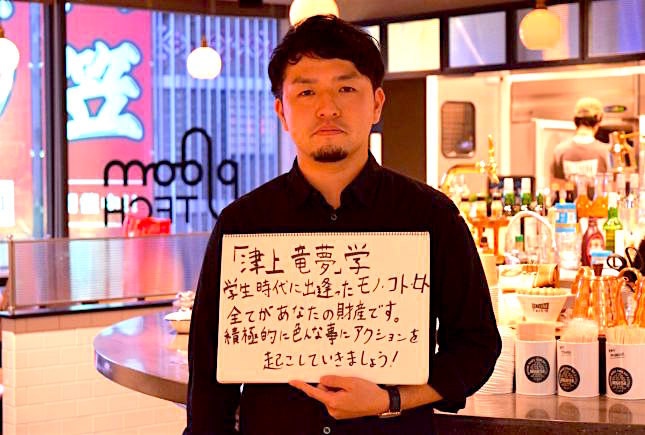 「津上竜夢」学
学生時代に出逢ったモノ、コト
全てがあなたの財産です。
積極的に色んな事にアクションを
起こしていきましょう!
笠
ploom
TECH